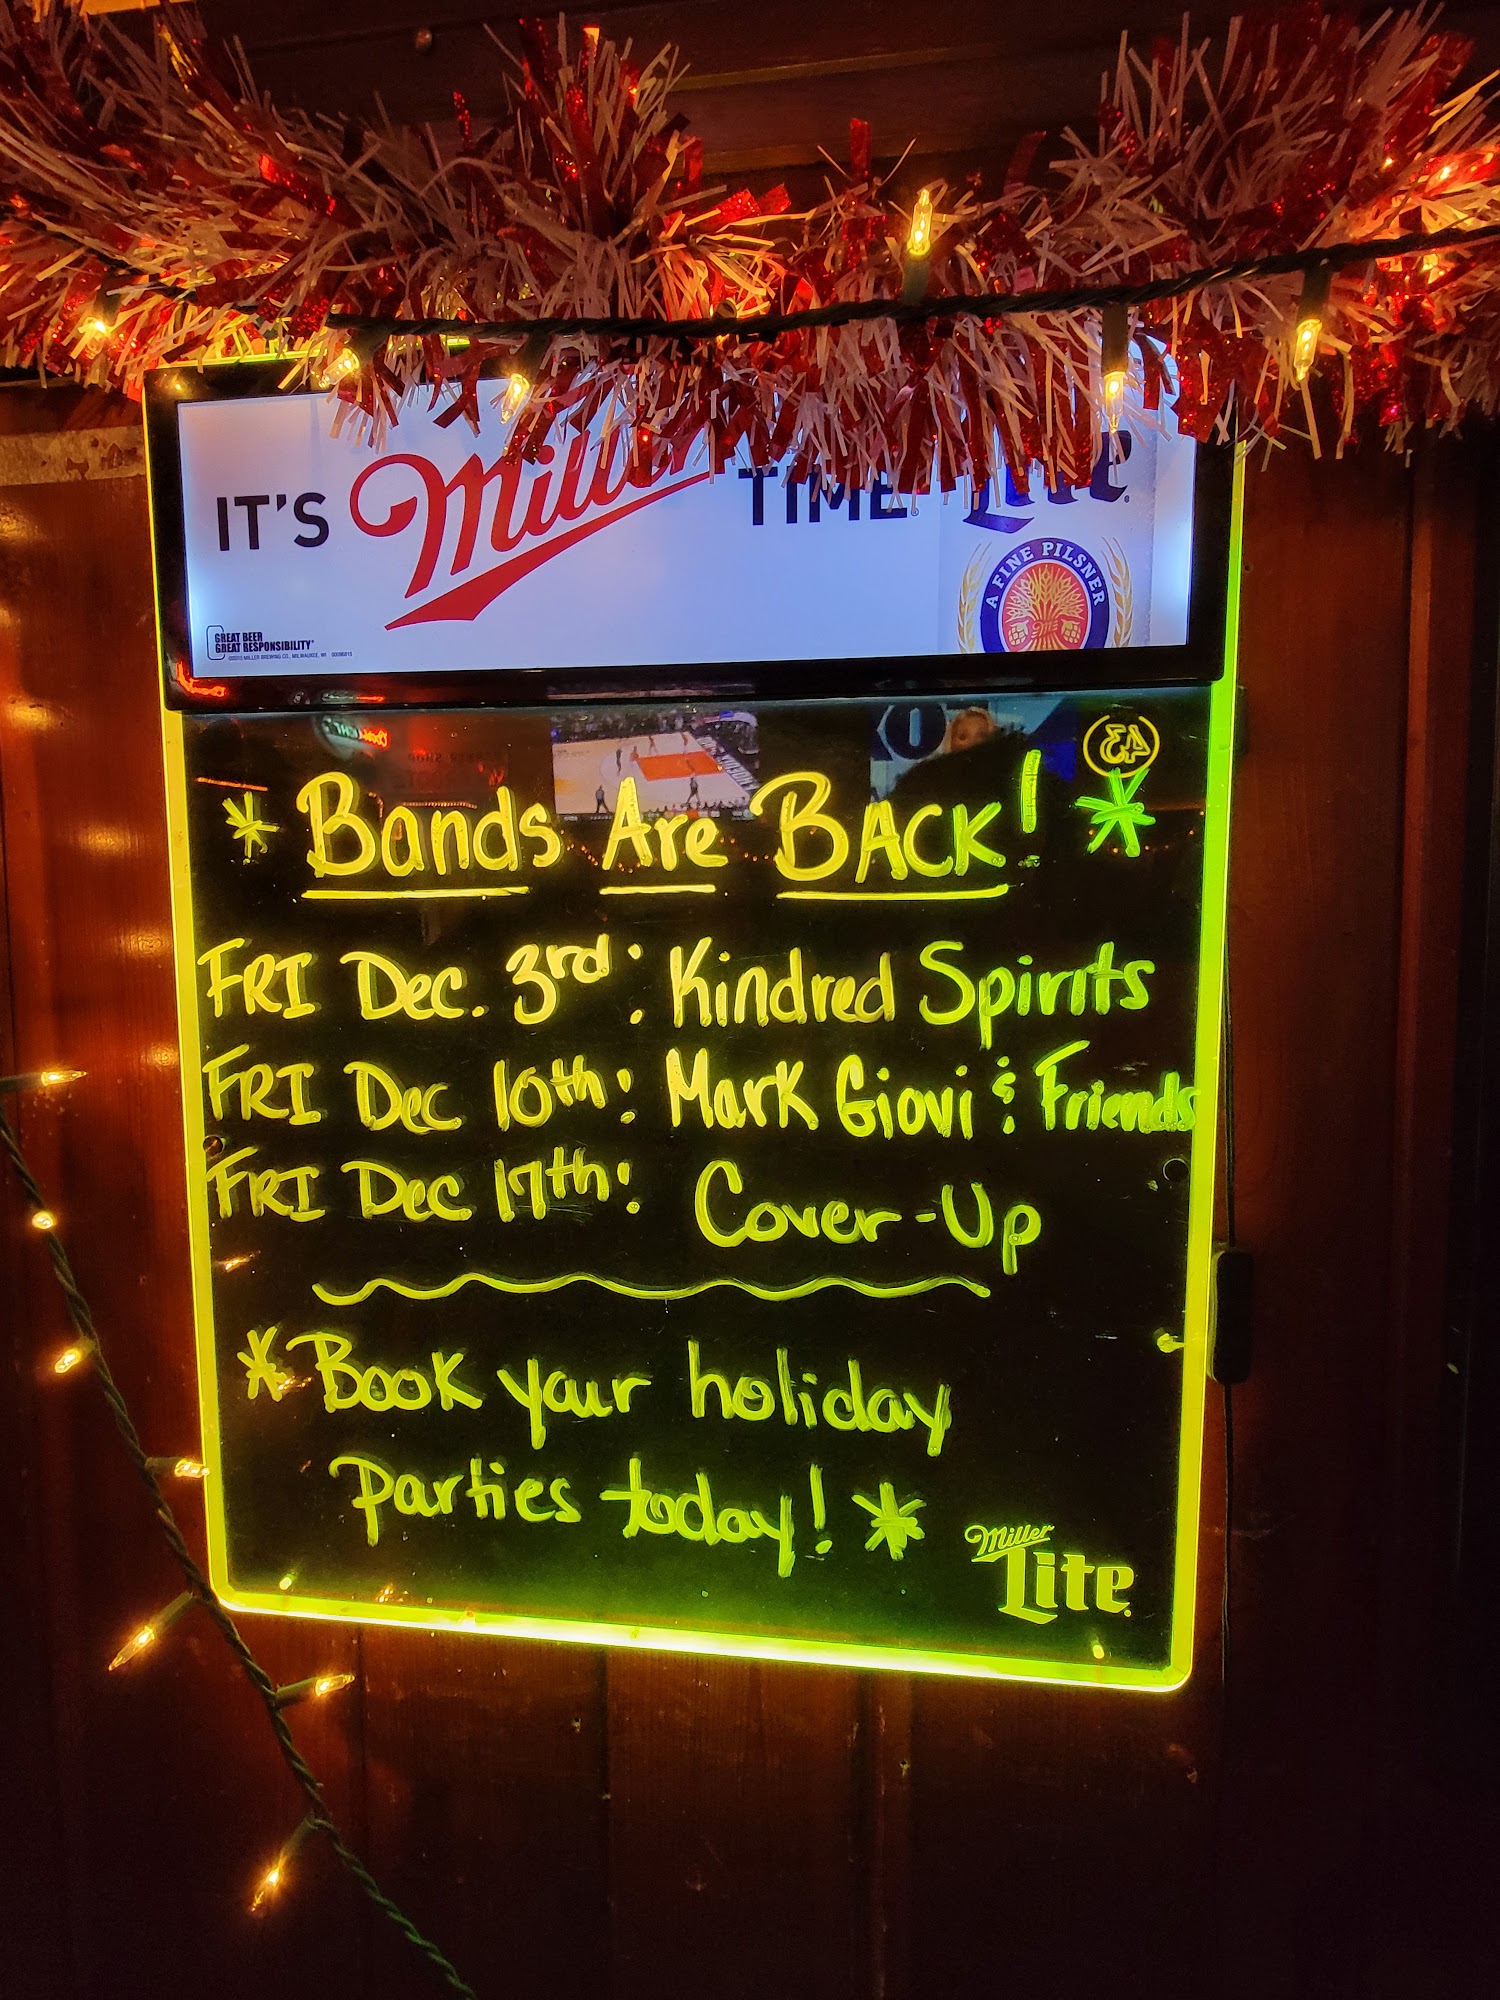 IT'S Miller TIME
Lite
A FINE PILSNER
GREAT BEER
GREAT RESPONSIBILITY
* Bands Are BACK! *
FRI Dec. 3rd: Kindred Spirits
FRI Dec 10th: Mark Giovi & Friends
FRI Dec 17th: Cover-Up
*Book your holiday
parties today! *
Miller
Lite